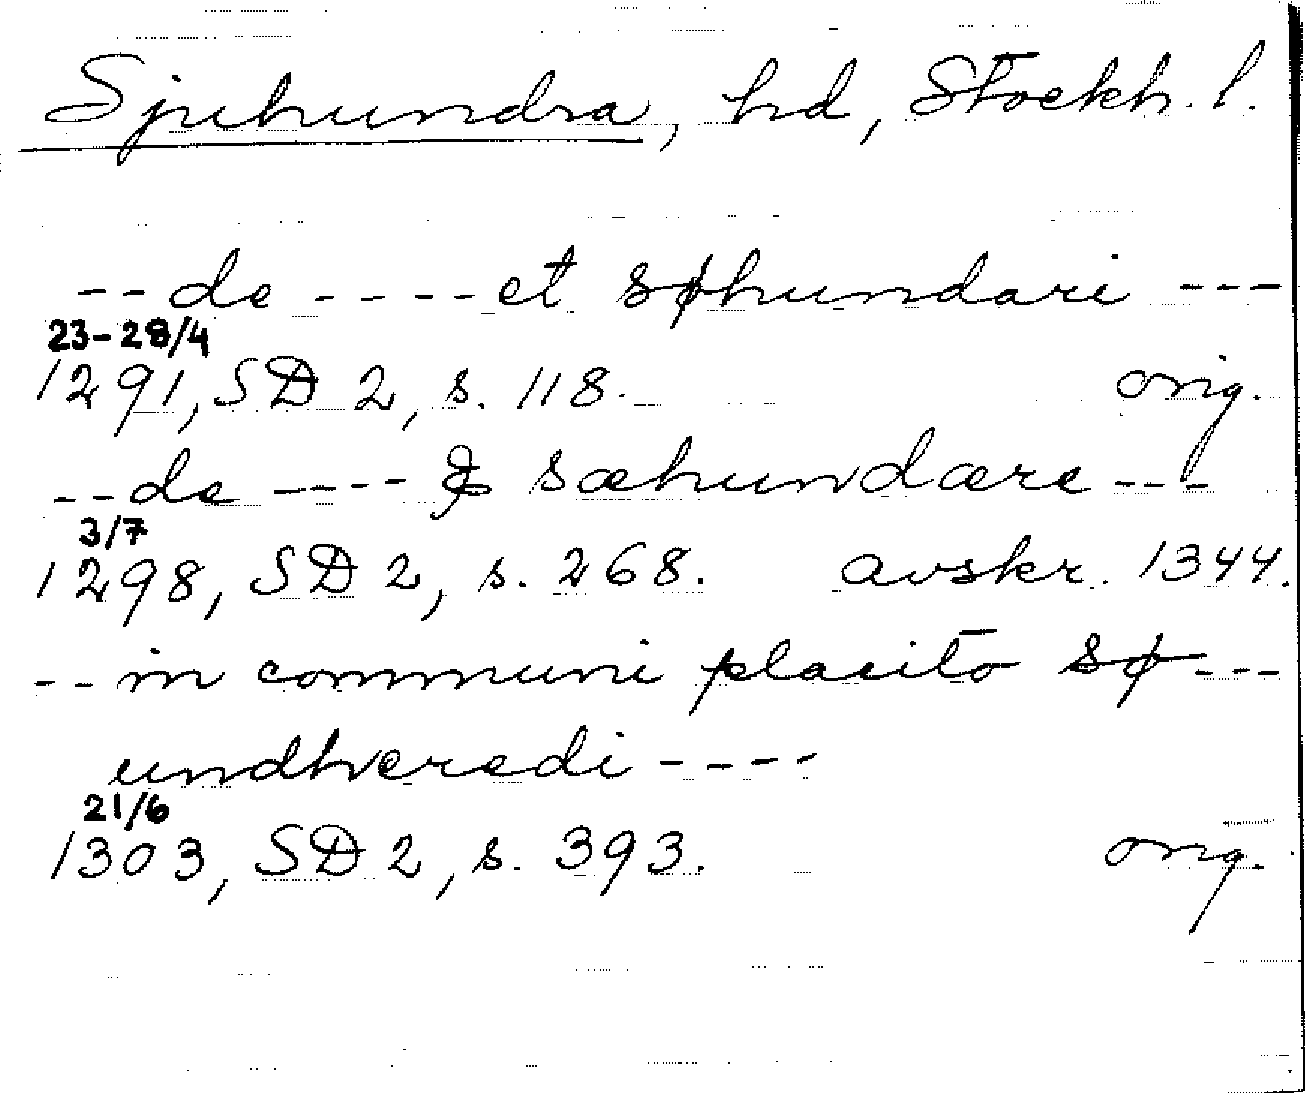 Sjuhundra, hd, Stockh. l.
-- de ---- et søhundari ---
23-28/4
1291, SD 2, s. 118. orig.
-- de ---- & sæhundære ---
3/7
1298, SD 2, s. 268. avskr. 1344.
-- in communi placito sø ---
undhæredi ----
21/6
1303, SD 2, s. 393. orig.